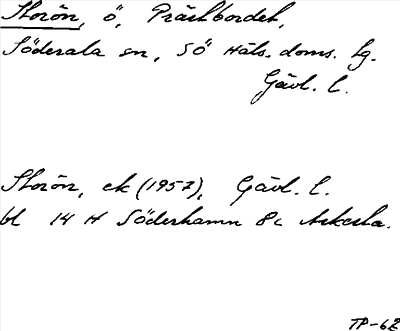 Storön, ö, Prästbordet,
Söderala sn, SÖ Häls. doms. tg.
Gävl. l.
Storön, ek (1957), Gävl. l.
bl 14 H Söderhamn 8c Askesta.
TP-62